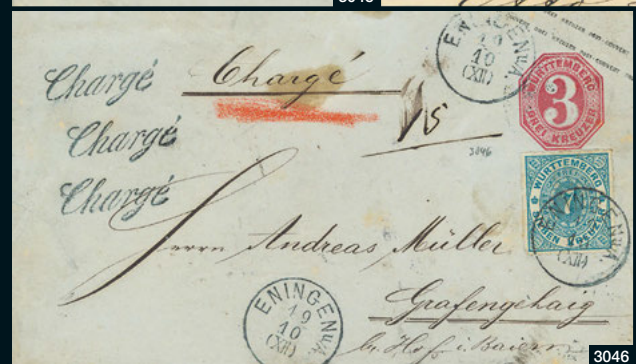 3046
Chargé
Chargé
Chargé
Chargé
ENINGEN u/A
19
10
(XII)
WÜRTTEMBERG
3
DREI KREUZER
N 5
3046
WÜRTTEMBERG
7
SIEBEN KREUZER
ENINGEN u/A
(XII)
Herrn Andreas Müller
Grafengehaig
bei Hof i. Baiern
ENINGEN u/A
19
10
(XII)